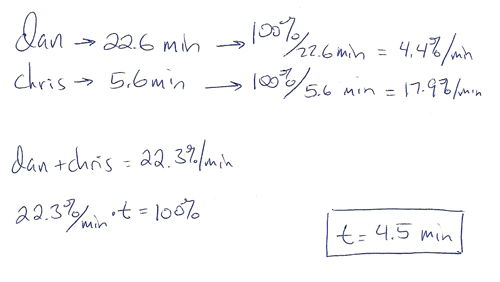 Dan → 22.6 min → 100%/22.6 min = 4.4%/min
Chris → 5.6 min → 100%/5.6 min = 17.9%/min
Dan + Chris = 22.3%/min
22.3%/min · t = 100%
t = 4.5 min